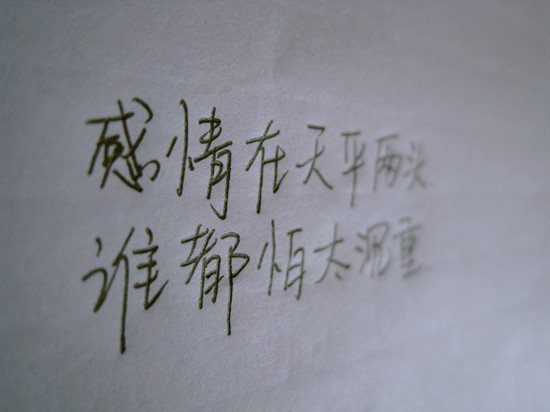 感情在天平两头
谁都怕太沉重